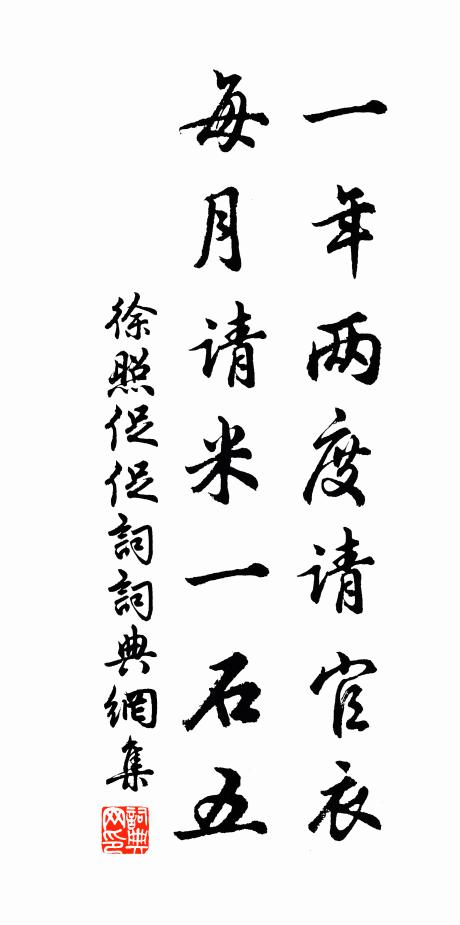 一年两度请官衣
每月请米一石五
徐照促促詞詞典網集
詞典网印